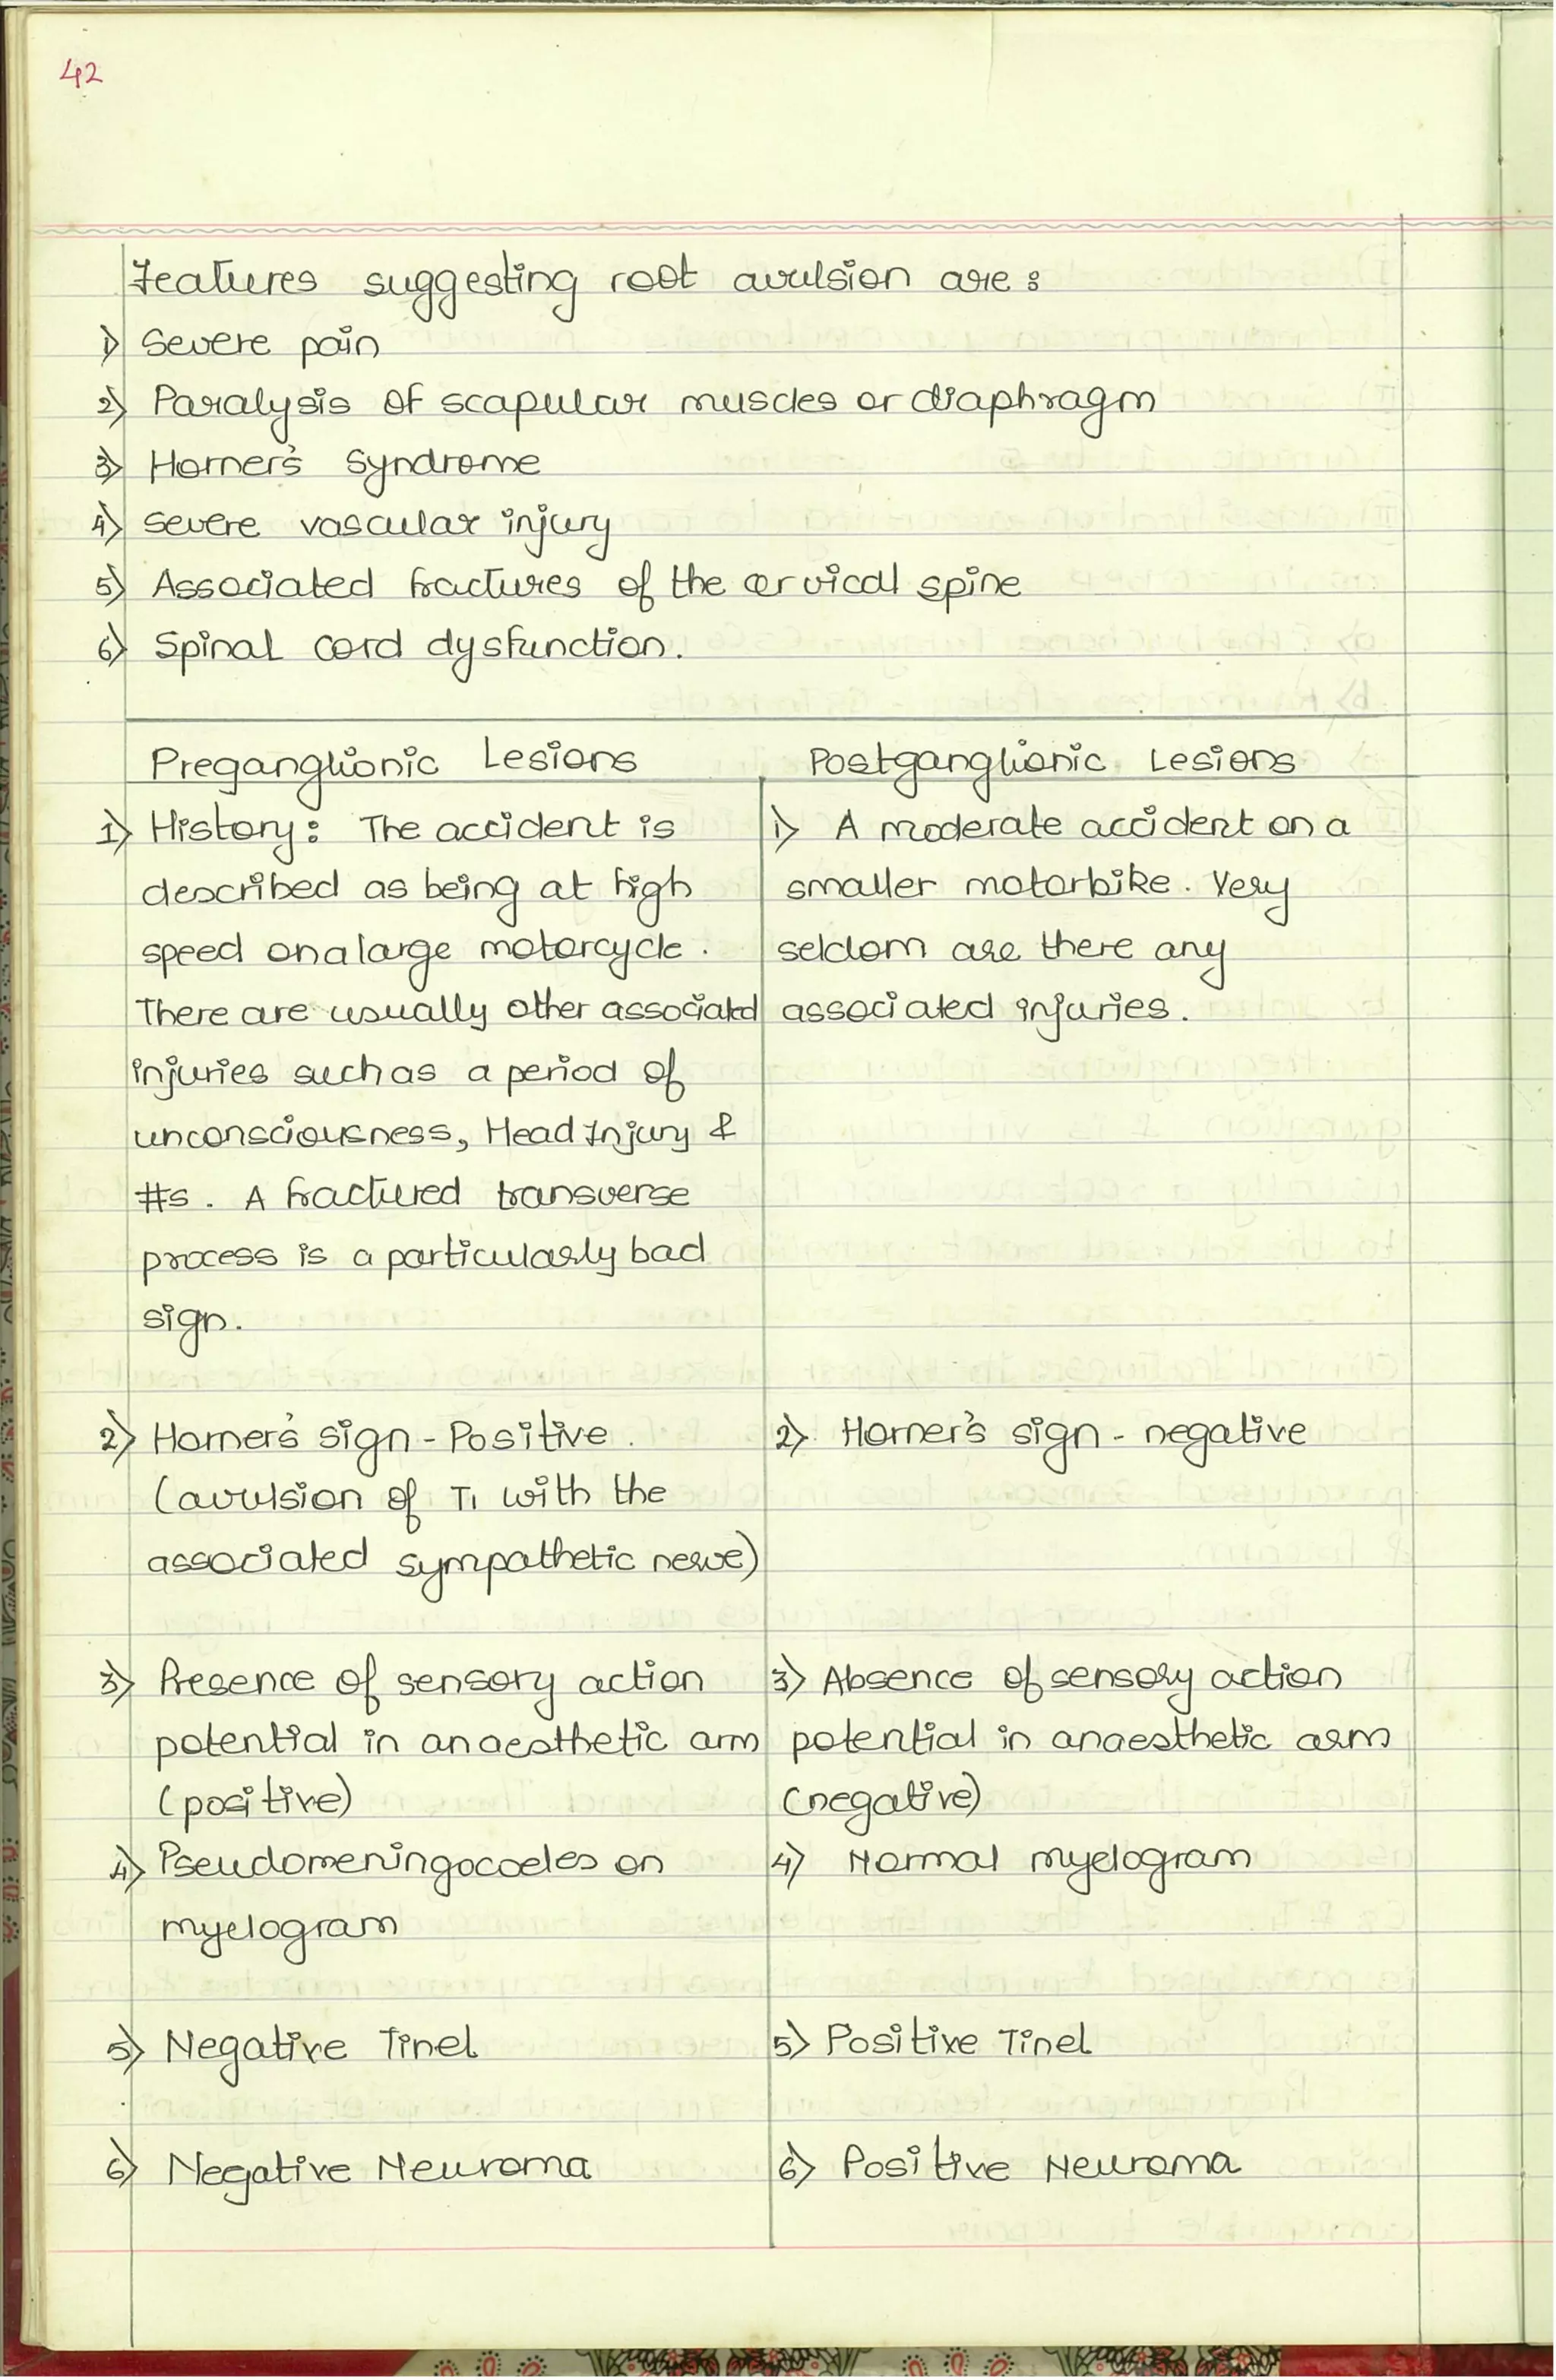 42
Features suggesting root avulsion are :
1) Severe pain
2) Paralysis of scapular muscles or diaphragm
3) Horner's Syndrome
4) Severe vascular injury
5) Associated fractures of the cervical spine
6) Spinal cord dysfunction.
Preganglionic Lesions
1) History : The accident is
described as being at high
speed on a large motorcycle.
There are usually other associated
injuries such as a period of
unconsciousness, Head Injury &
#s. A fractured transverse
process is a particularly bad
sign.
2) Horner's sign - Positive.
(avulsion of T1 with the
associated sympathetic nerve)
3) Presence of sensory action
potential in anaesthetic arm
(positive)
4) Pseudomeningocoeles on
myelogram
5) Negative Tinel
6) Negative Neuroma
Postganglionic Lesions
1) A moderate accident on a
smaller motorbike. Very
seldom are there any
associated injuries.
2) Horner's sign - negative
3) Absence of sensory action
potential in anaesthetic arm
(negative)
4) Normal myelogram
5) Positive Tinel
6) Positive Neuroma